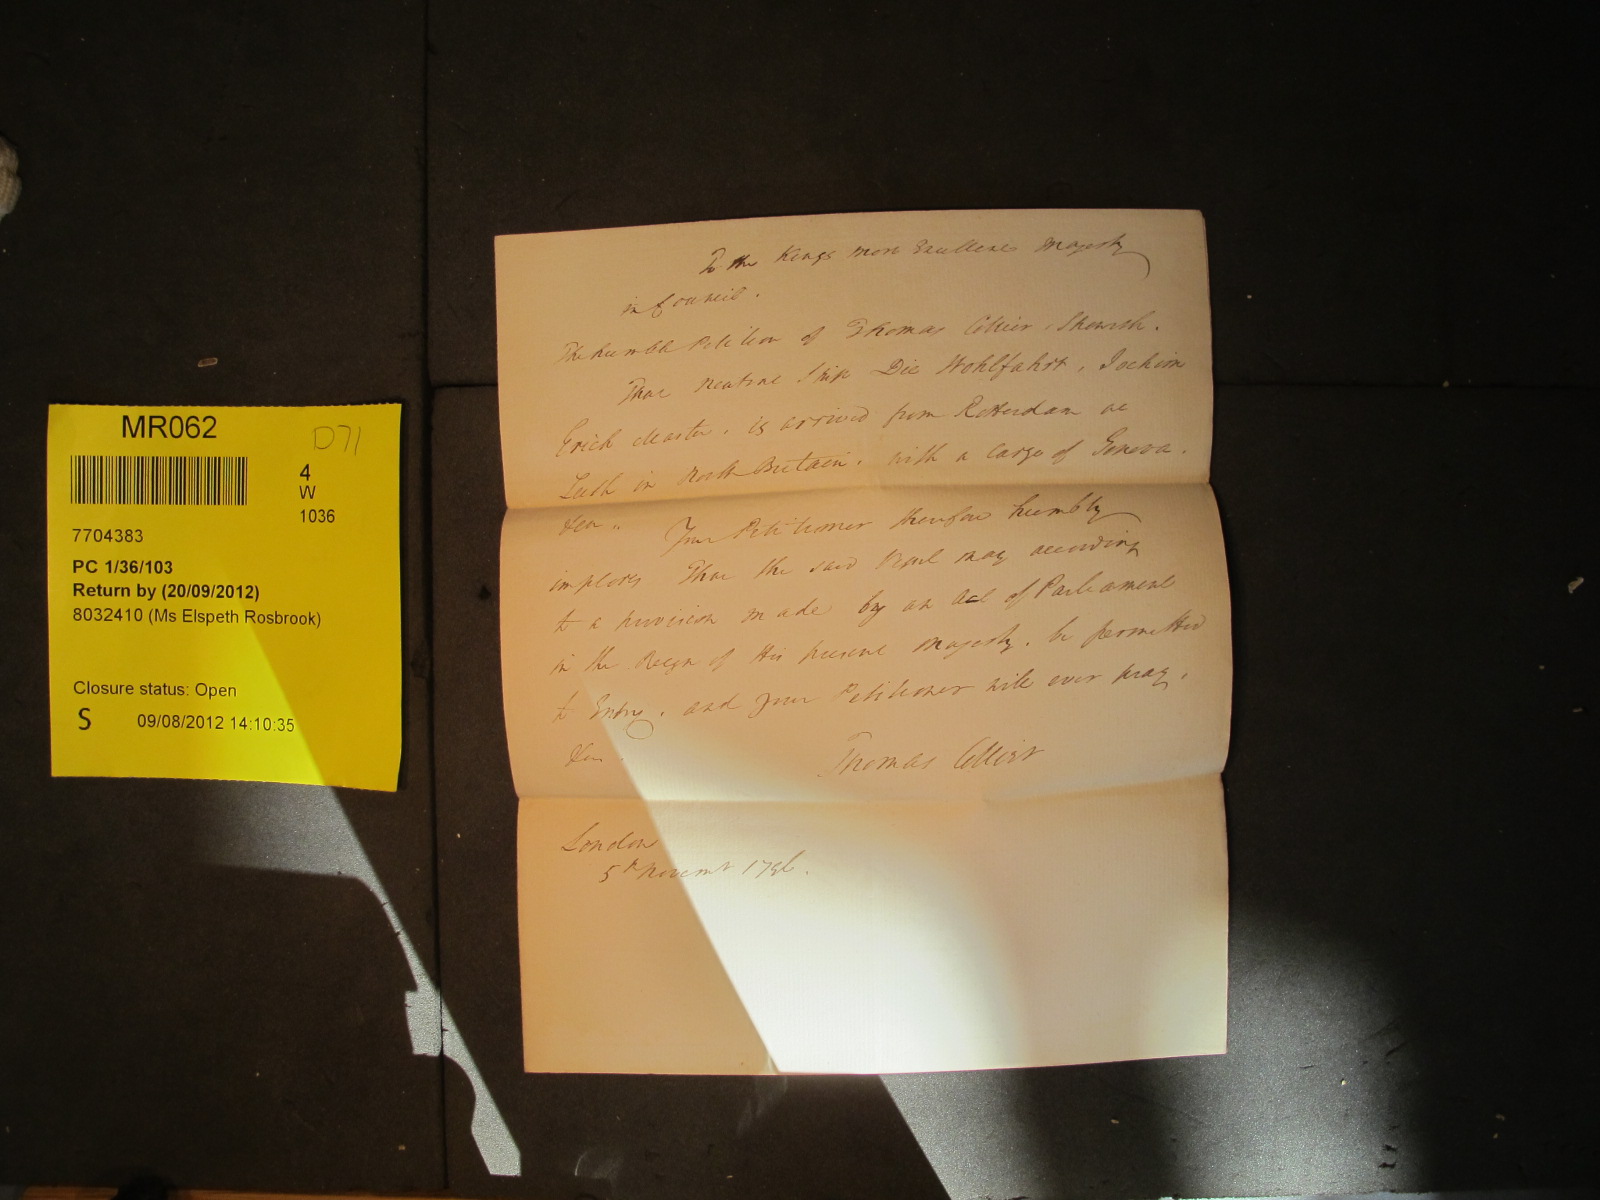 MR062
D71
4
W
1036
7704383
PC 1/36/103
Return by (20/09/2012)
8032410 (Ms Elspeth Rosbrook)
Closure status: Open
S 09/08/2012 14:10:35
To the Kings most Excellent Majesty
in Council.
The humble Petition of Thomas Collier, Sheweth.
That neutral Ship Die Wohlfahrt, Jochim
Erich Master, is arrived from Rotterdam at
Leith in North Britain, with a cargo of Geneva.
Your Petitioner therefore humbly
implores That the said Vessel may according
to a provision made by an Act of Parliament
in the Reign of His present Majesty, be permitted
to Entry, and your Petitioner will ever pray,
Thomas Collier
London
5th Novemr 1796.